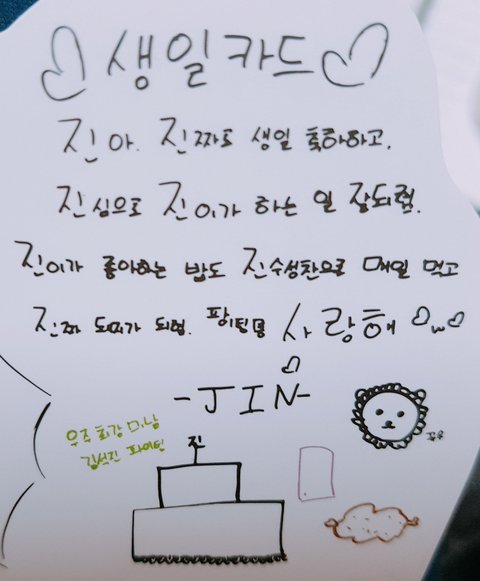 생일카드
진아. 진짜로 생일 축하하고.
진심으로 진이가 하는 일 잘되렴.
진이가 좋아하는 밥도 진수성찬으로 매일 먹고
진짜 되렴. 사랑해
-JIN-
우주 최강 미남
김석진 파이팅
진